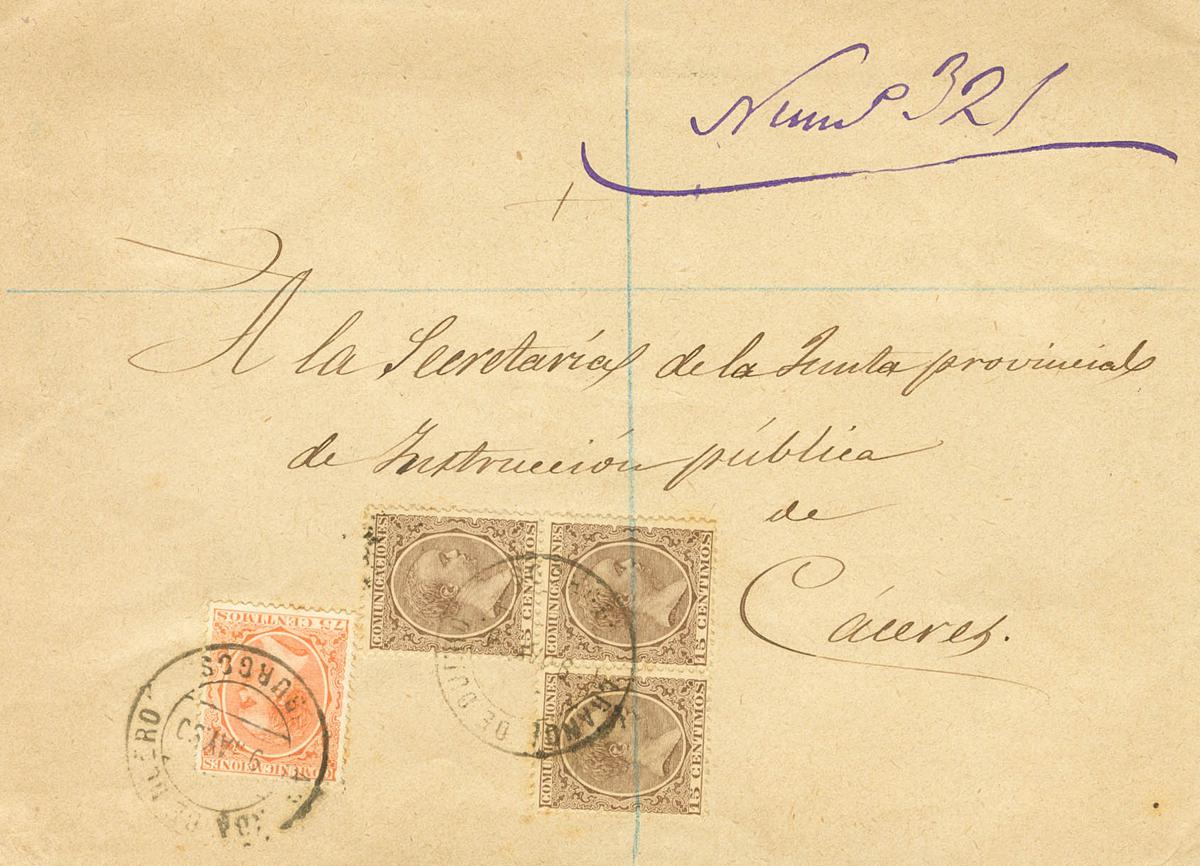 Num.º 321
A la Secretaría de la Junta provincial
de Instrucción pública
de
Cáceres.
COMUNICACIONES
15 CENTIMOS
COMUNICACIONES
15 CENTIMOS
COMUNICACIONES
15 CENTIMOS
75 CENTIMOS
COMUNICACIONES
BURGOS
DE DUERO
9 MAY
ARANDA DE DUERO